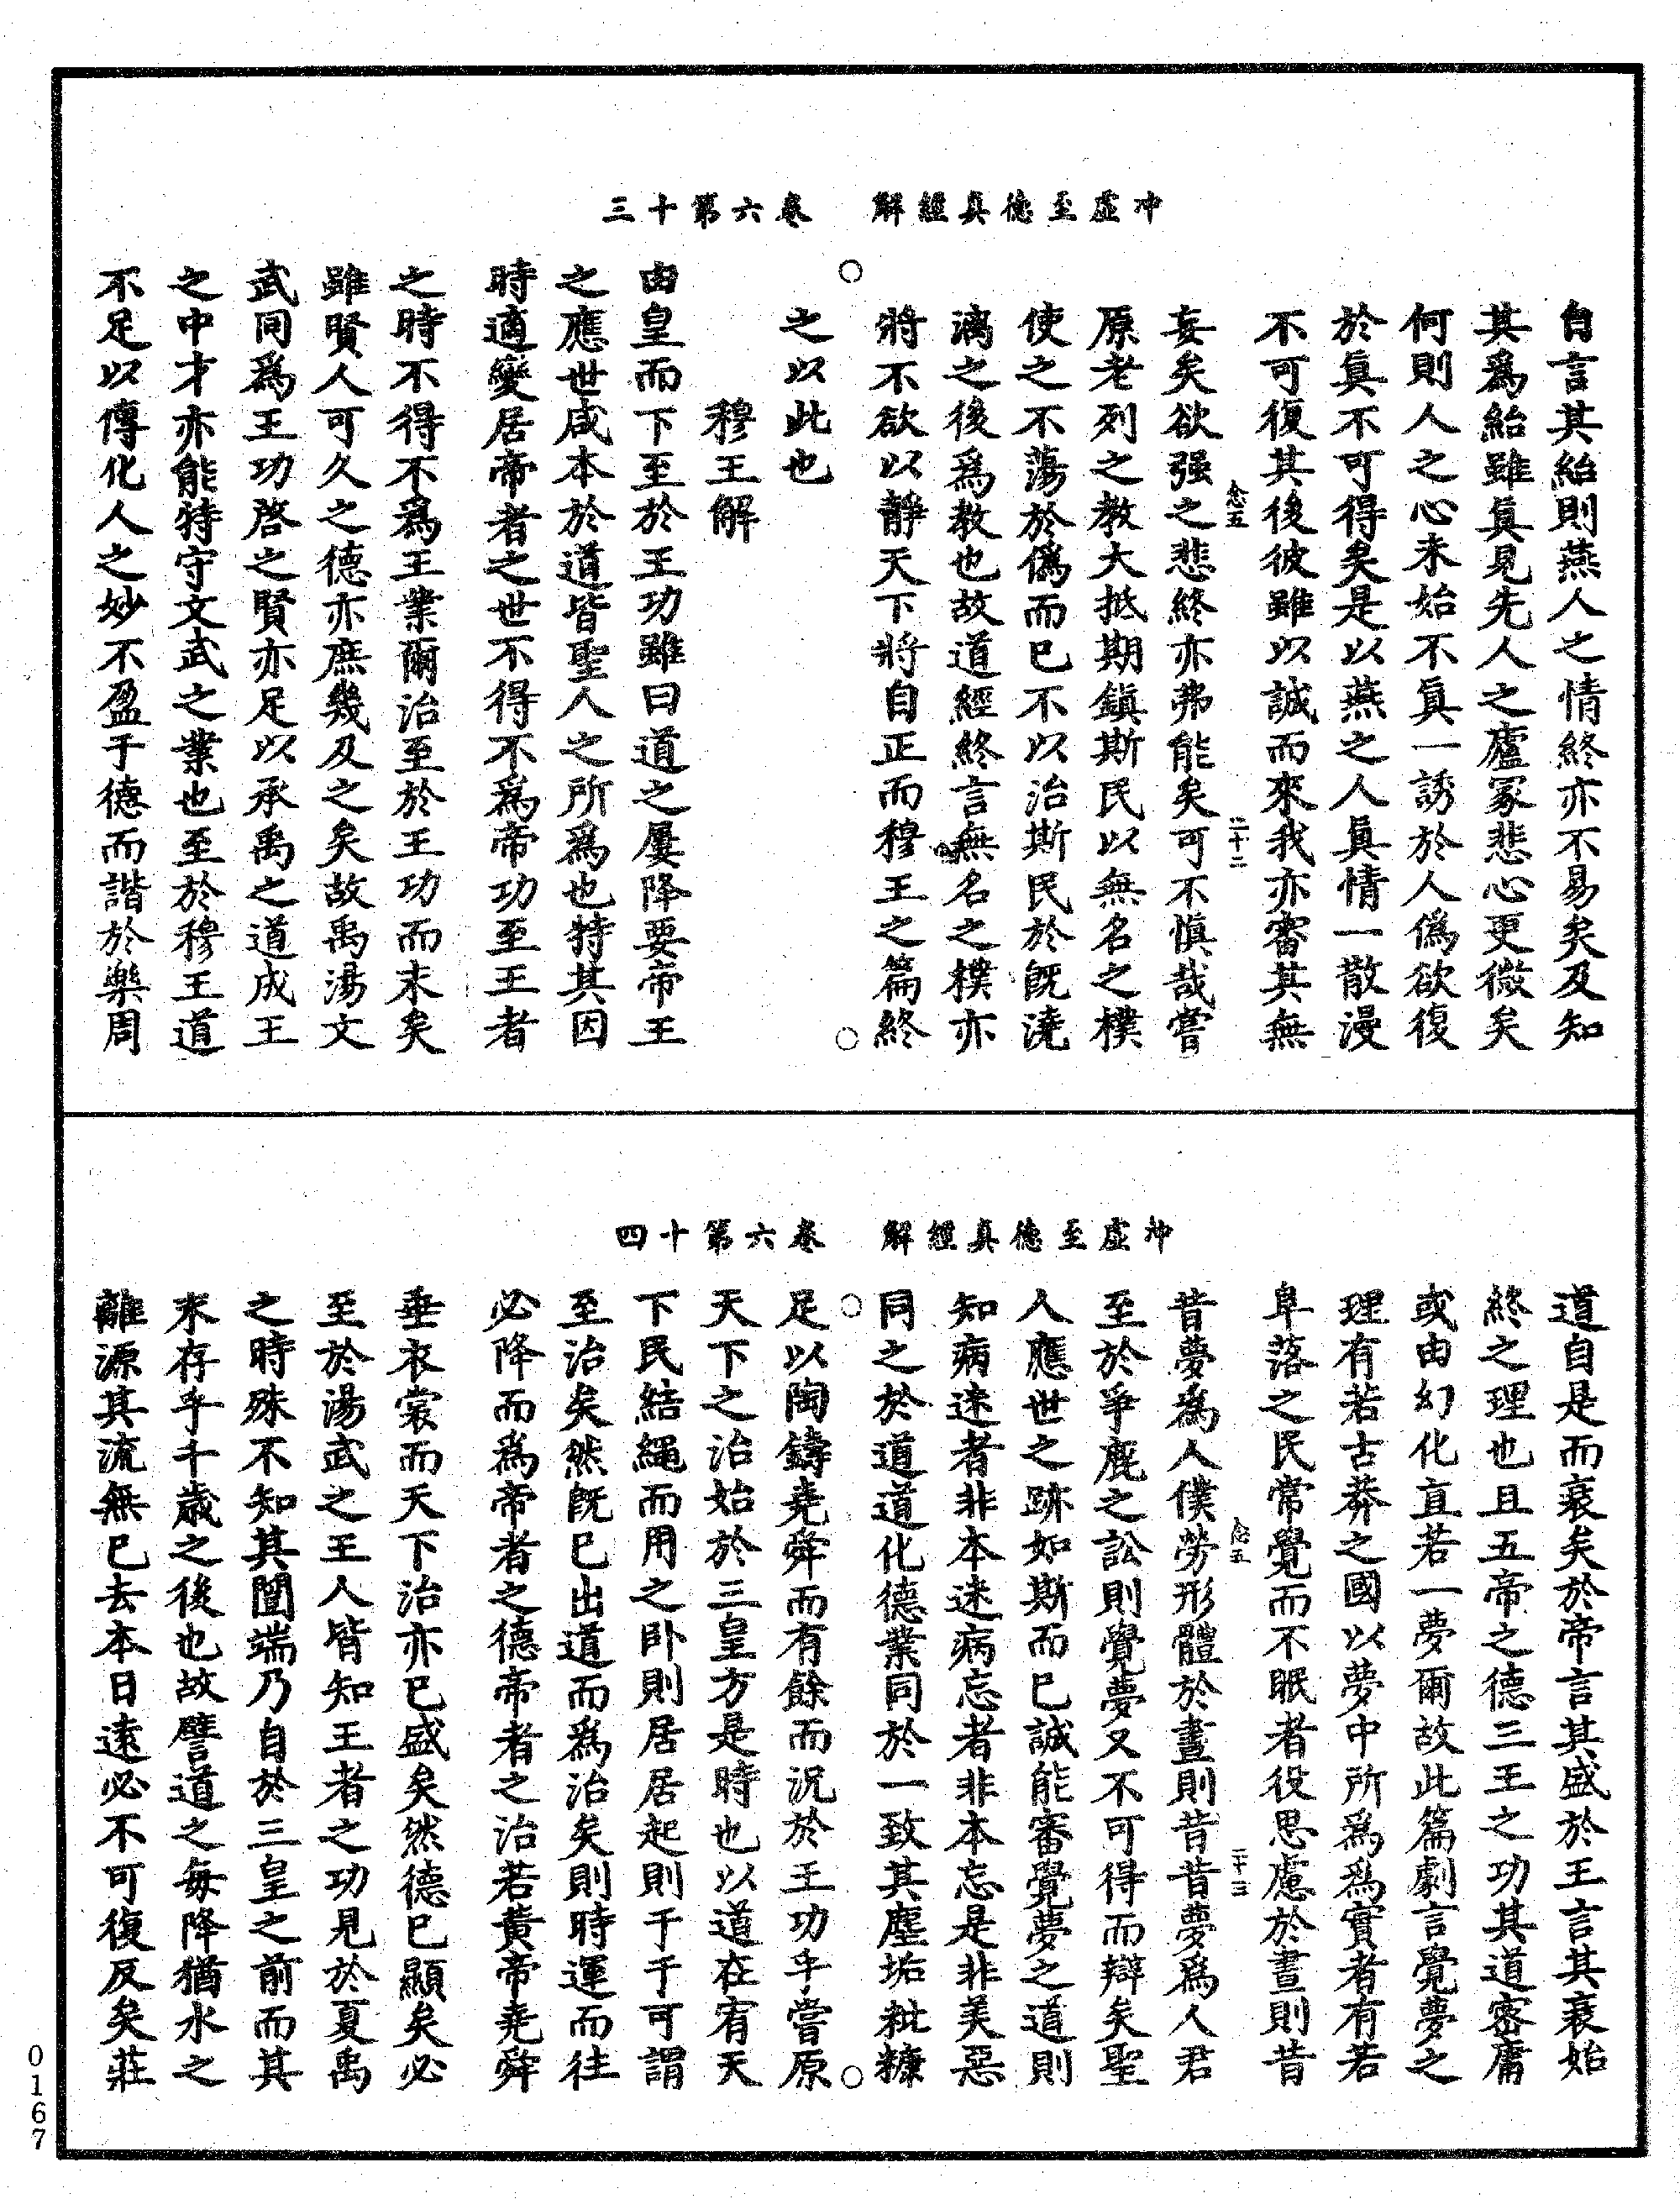 冲虛至德真經解　卷六第十三
自言其紿則燕人之情終亦不易矣及知
其爲紿雖眞見先人之廬冢悲心更微矣
何則人之心未始不眞一誘於人僞欲復
於眞不可得矣是以燕之人眞情一散漫
不可復其後彼雖以誠而來我亦審其無
念五　二十二
妄矣欲强之悲終亦弗能矣可不愼哉嘗
原老列之教大抵期鎭斯民以無名之樸
使之不蕩於僞而已不以治斯民於旣澆
漓之後爲教也故道經終言無名之樸亦
將不欲以靜天下將自正而穆王之篇終
之以此也
穆王解
由皇而下至於王功雖曰道之屢降要帝王
之應世咸本於道皆聖人之所爲也特其因
時適變居帝者之世不得不爲帝功至王者
之時不得不爲王業爾治至於王功而末矣
雖賢人可久之德亦庶幾及之矣故禹湯文
武同爲王功啓之賢亦足以承禹之道成王
之中才亦能持守文武之業也至於穆王道
不足以傳化人之妙不盈于德而諧於樂周
冲虛至德真經解　卷六第十四
道自是而衰矣於帝言其盛於王言其衰始
終之理也且五帝之德三王之功其道密庸
或由幻化直若一夢爾故此篇劇言覺夢之
理有若古莽之國以夢中所爲爲實者有若
阜落之民常覺而不眠者役思慮於晝則昔
念五　二十三
昔夢爲人僕勞形體於晝則昔昔夢爲人君
至於爭鹿之訟則覺夢又不可得而辯矣聖
人應世之跡如斯而已誠能審覺夢之道則
知病迷者非本迷病忘者非本忘是非美惡
同之於道道化德業同於一致其塵垢粃糠
足以陶鑄堯舜而有餘而況於王功乎嘗原
天下之治始於三皇方是時也以道在宥天
下民結繩而用之卧則居居起則于于可謂
至治矣然旣已出道而爲治矣則時運而往
必降而爲帝者之德帝者之治若黃帝堯舜
垂衣裳而天下治亦已盛矣然德已顯矣必
至於湯武之王人皆知王者之功見於夏禹
之時殊不知其閶端乃自於三皇之前而其
末存乎千歲之後也故譬道之每降猶水之
離源其流無已去本日遠必不可復反矣莊
0167